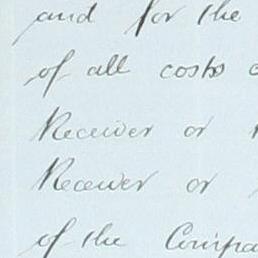 and for the
of all costs
Receiver or
Receiver or
of the Compa